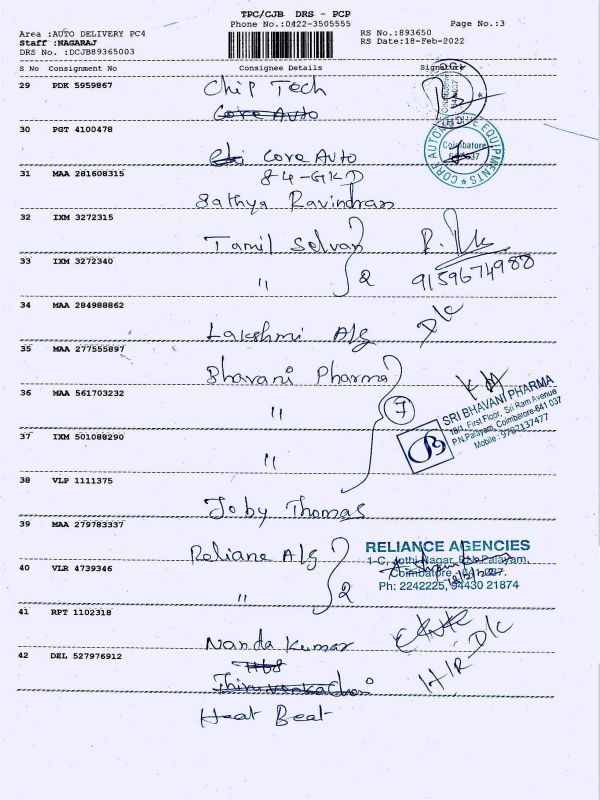 TPC/CJB DRS - PCP
Phone No.:0422-3505555
Page No.:3
Area :AUTO DELIVERY PC4
Staff :NAGARAJ
DRS No. :DCJB89365003
RS No.:893650
RS Date:18-Feb-2022
S No Consignment No Consignee Details Signature
29 PDK 5959867 Chip Tech
Core Auto
30 PGT 4100478
Core Auto
CORE AUTOMOTIVE EQUIPMENTS
Coimbatore
31 MAA 281608315 84-GKD
Sathya Ravindran
32 IXM 3272315 Tamil Selvan
33 IXM 3272340 " 2 9159674988
34 MAA 284988862
Lakshmi Alg D/C
35 MAA 277555897
Bhavani Pharma
36 MAA 561703232 " 7
SRI BHAVANI PHARMA
18/1, First Floor, Sri Ram Avenue
P.N.Palayam, Coimbatore-641 037
Mobile : 9787137477
37 IXM 501088290
"
38 VLP 1111375
Joby Thomas
39 MAA 279783337
Reliane Alg
RELIANCE AGENCIES
1-C, Jothi Nagar, P.N.Palayam,
Coimbatore - 641 037.
Ph: 2242225, 94430 21874
40 VLR 4739346
" 2
41 RPT 1102318
Nanda Kumar D/C
42 DEL 527976912
H/R
Heat Beat